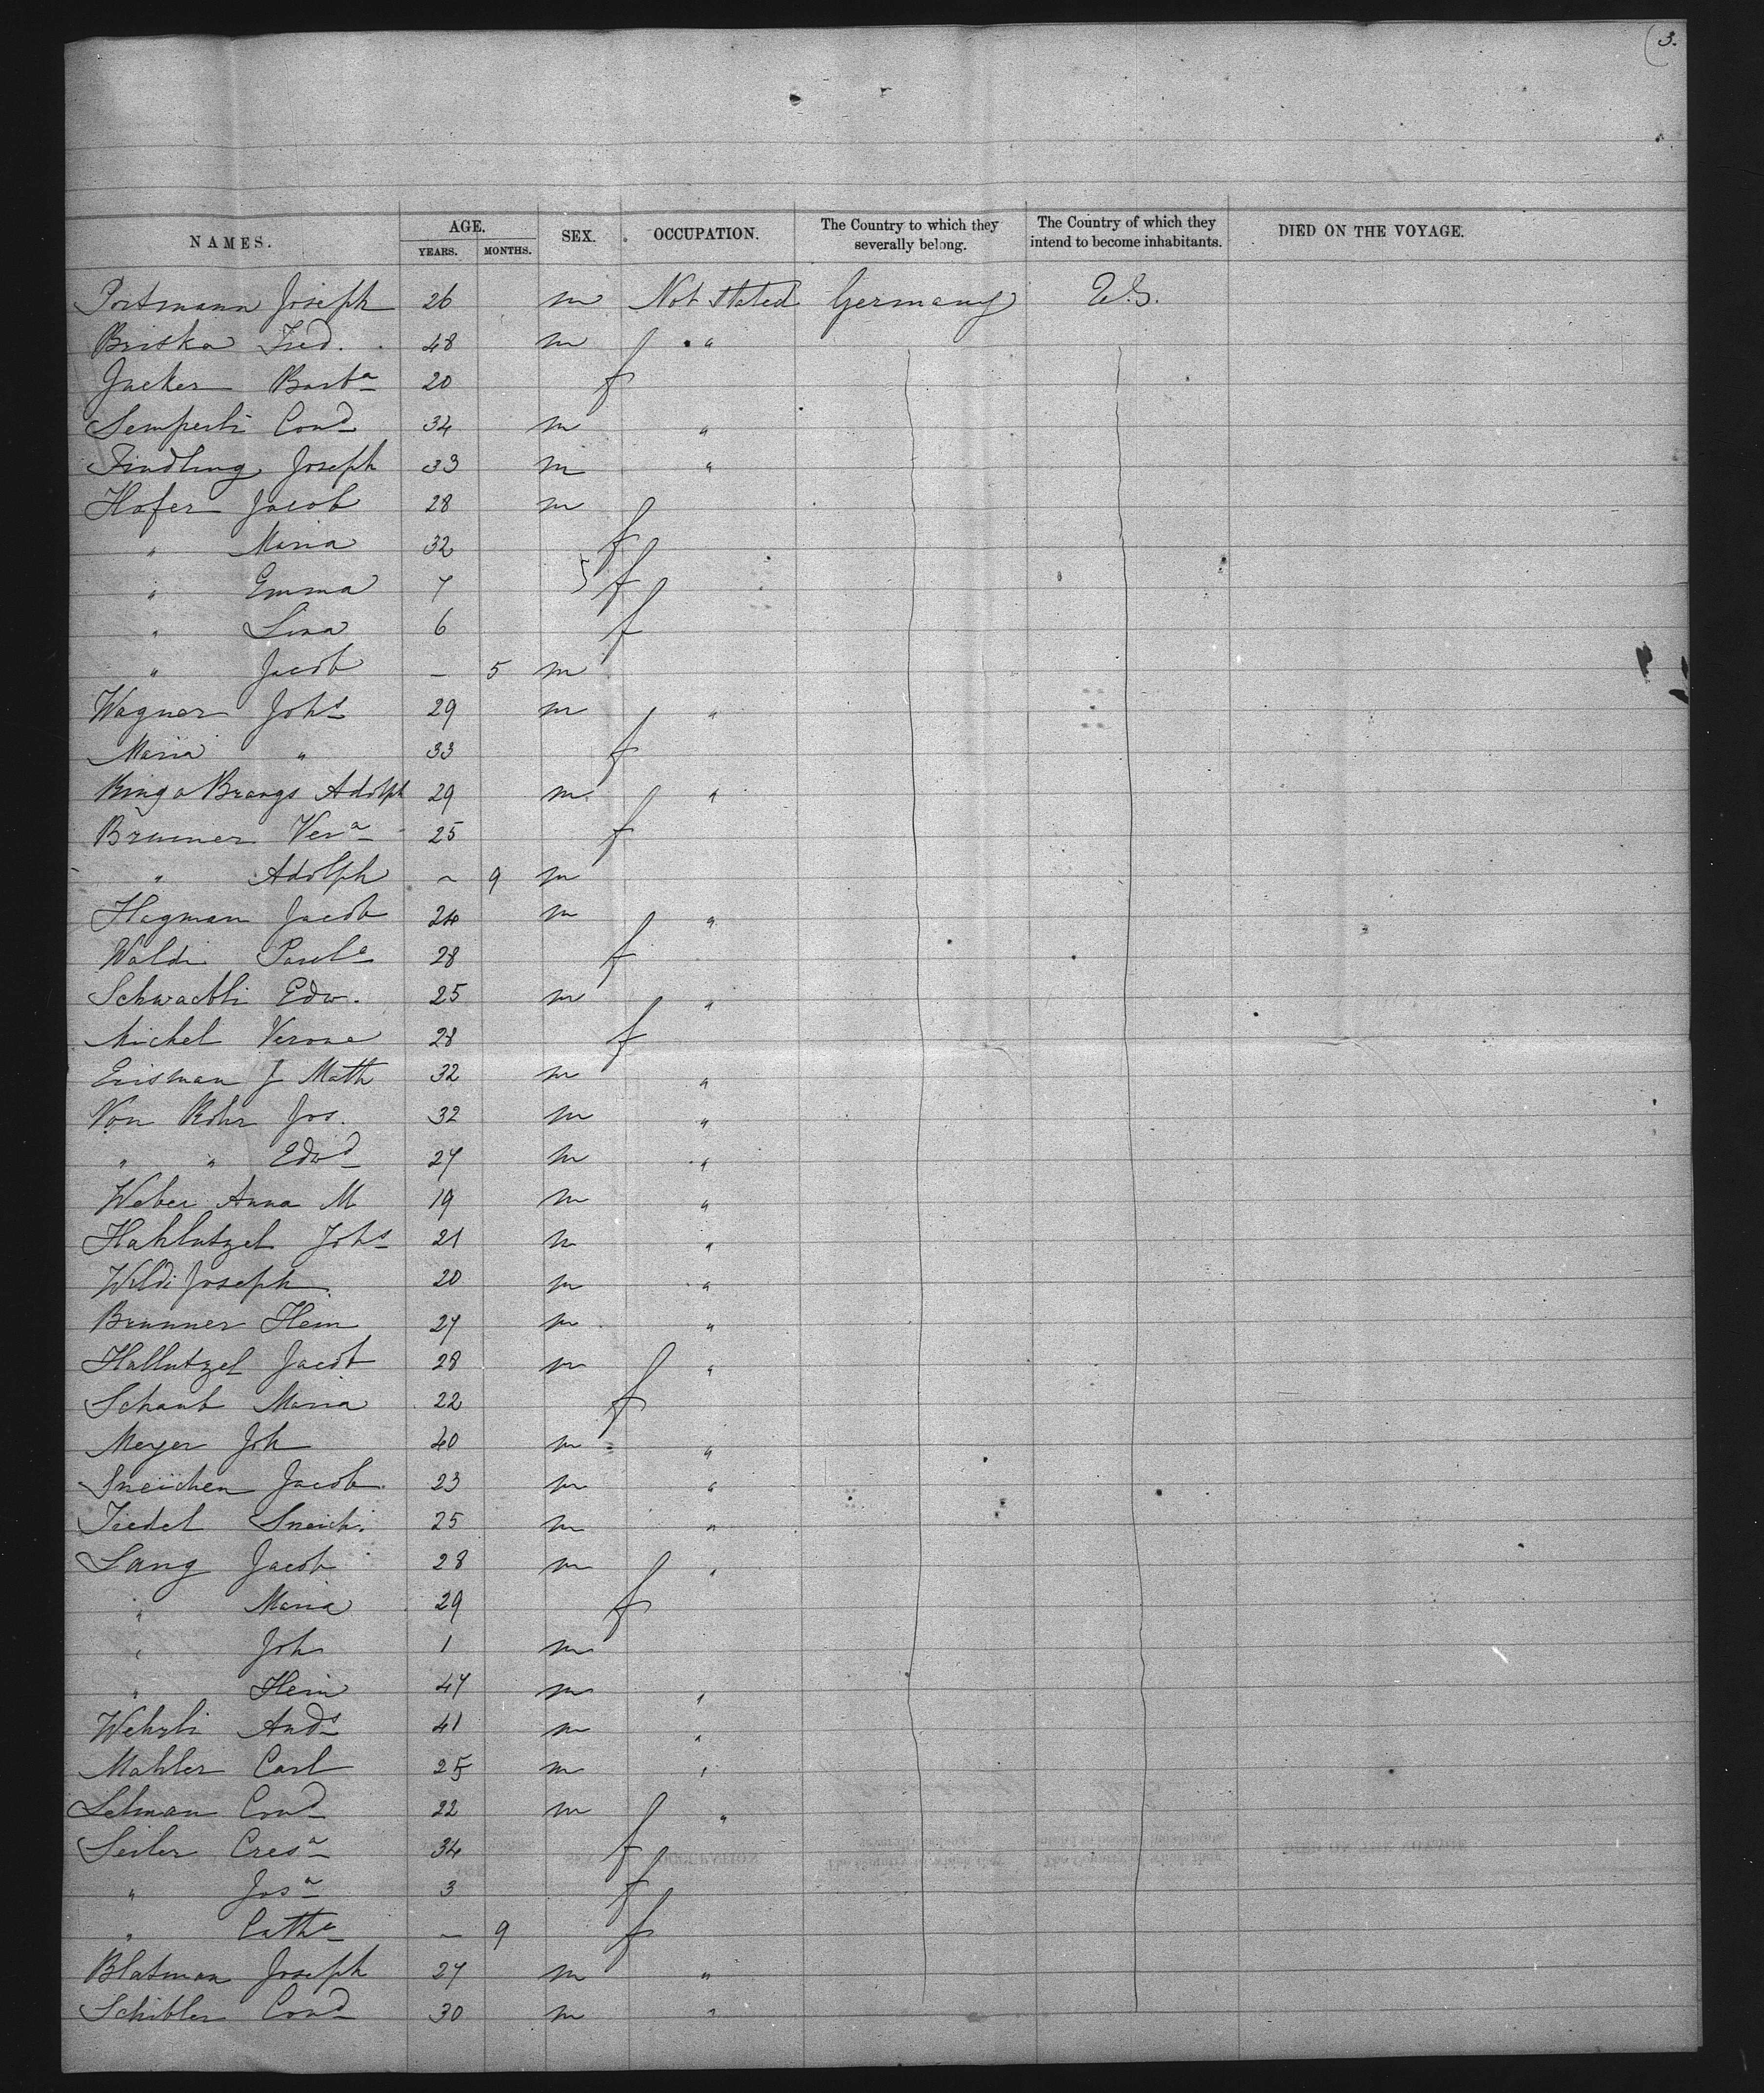 3.
NAMES. AGE. YEARS. MONTHS. SEX. OCCUPATION. The Country to which they severally belong. The Country of which they intend to become inhabitants. DIED ON THE VOYAGE.
Portmann Joseph 26 m Not stated Germany U.S.
Briska Fred. 48 m "
Jucker Barbª 20 f
Semperli Conᵈ 34 m "
Findling Joseph 33 m "
Hofer Jacob 28 m
" Maria 32 f
" Emma 7 f
" Lina 6 f
" Jacob – 5 m
Wagner Johˢ 29 m "
Maria " 33 f
Ringo Brangs Adolph 29 m "
Brunner Verª 25 f
" Adolph ~ 9 m
Hagman Jacob 24 m "
Waldi 28 f
Schwabli Edw. 25 m "
Michel Verone 28 f
Erisman J Math 32 m "
Von Rohr Jos. 32 m "
" " Edwᵈ 27 m "
Weber Anna M 19 m "
Hahlutzel Johˢ 21 m "
Wildi Joseph 20 m "
Brunner Hein 27 m "
Hallutzel Jacob 28 m "
Schaub Maria 22 f
Meyer Joh 40 m "
Sneichen Jacob 23 m "
Friedel Sneich. 25 m "
Lang Jacob 28 m "
" Maria 29 f
" Joh 1 m
" Hein 47 m "
Wehrli Andˢ 41 m "
Mahler Carl 25 m "
Selman Conᵈ 22 m "
Seiler Cresª 34 f
" Josª 3 f
" Cathª – 9 f
Blatman Joseph 27 m "
Schibler Conᵈ 30 m "